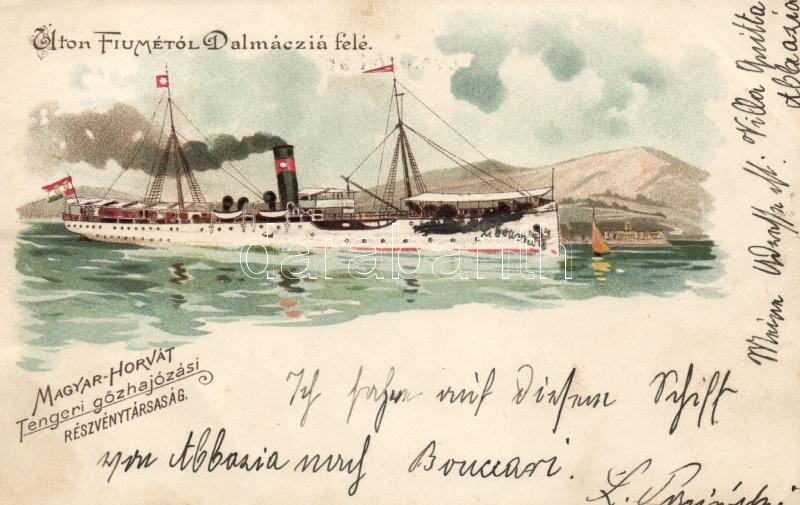 Úton FIUMÉTÓL Dalmácziá felé.
MAGYAR-HORVÁT
Tengeri gőzhajózási
RÉSZVÉNYTÁRSASÁG.
Ich fahre auf diesem Schiff
von Abbazia nach Bouccari.
Meine Adresse ist: Villa
Abbazia
darabanth.com